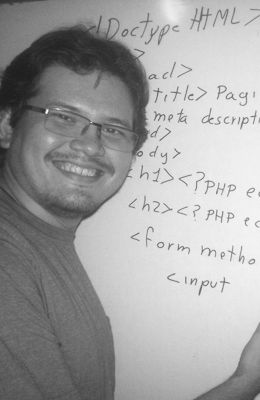 <!Doctype HTML>
>
ad>
title> Pagi
meta descripti
d>
ody>
<h1><?PHP ec
<h2><?PHP ec
<form metho
<input